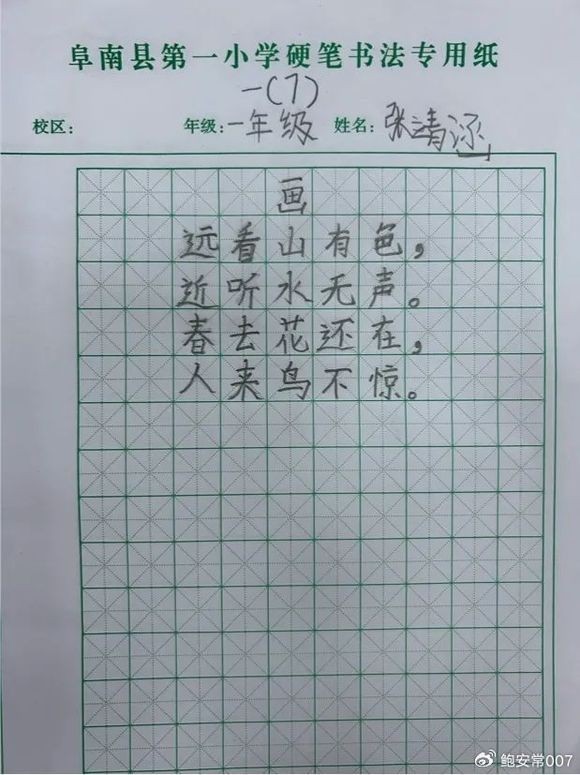 阜南县第一小学硬笔书法专用纸
一(7)
校区: 年级:一年级 姓名:张清涵
画
远看山有色,
近听水无声。
春去花还在,
人来鸟不惊。
鲍安常007